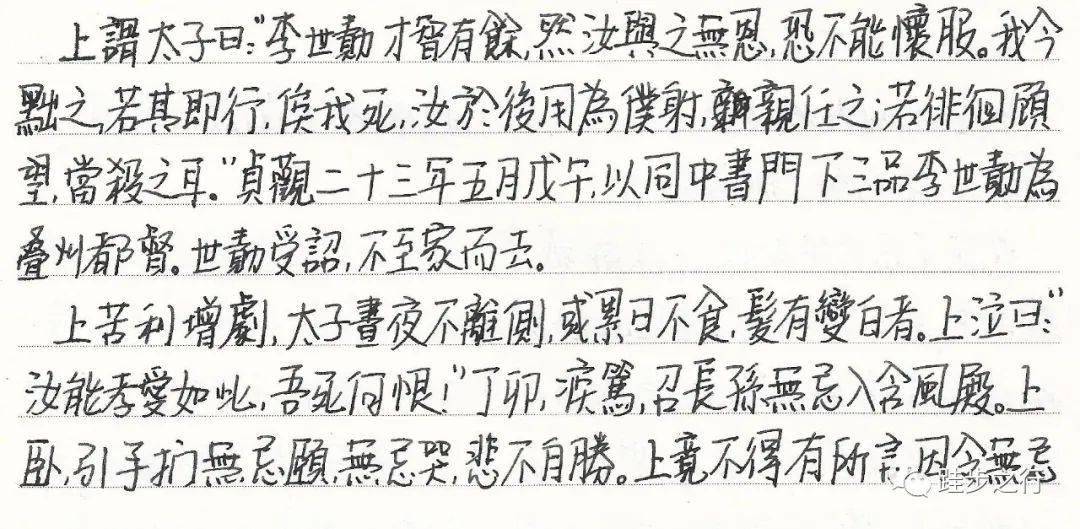 上謂太子曰:"李世勣才智有餘,然汝與之無恩,恐不能懷服。我今
黜之,若其即行,俟我死,汝於後用為僕射,親任之;若徘徊顧
望,當殺之耳。"貞觀二十三年五月戊午,以同中書門下三品李世勣為
疊州都督。世勣受詔,不至家而去。
上苦利增劇,太子晝夜不離側,或累日不食,髮有變白者。上泣曰:"
汝能孝愛如此,吾死何恨!"丁卯,疾篤,召長孫無忌入含風殿。上
臥,引手捫無忌頤,無忌哭,悲不自勝。上竟不得有所言,因令無忌
跬步之行